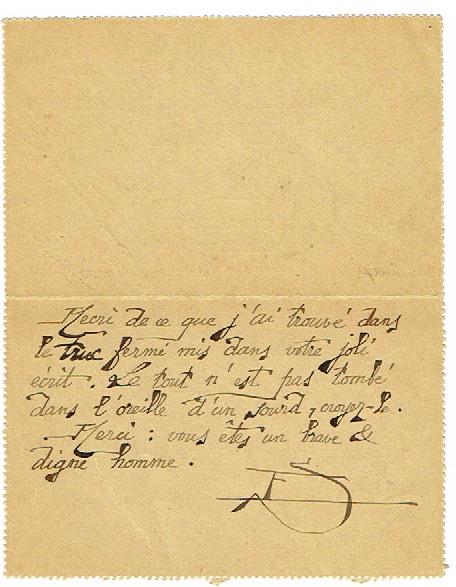 Mecri de ce que j'ai trouvé dans
le truc fermé mis dans votre joli
écrit. Le tout n'est pas tombé
dans l'oreille d'un sourd, croyez-le.
Merci : vous êtes un brave &
digne homme.
ES